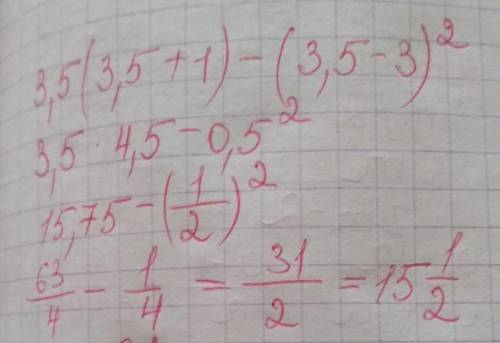 3,5(3,5+1)-(3,5-3)²
3,5·4,5-0,5²
15,75-(1/2)²
63/4 - 1/4 = 31/2 = 15 1/2